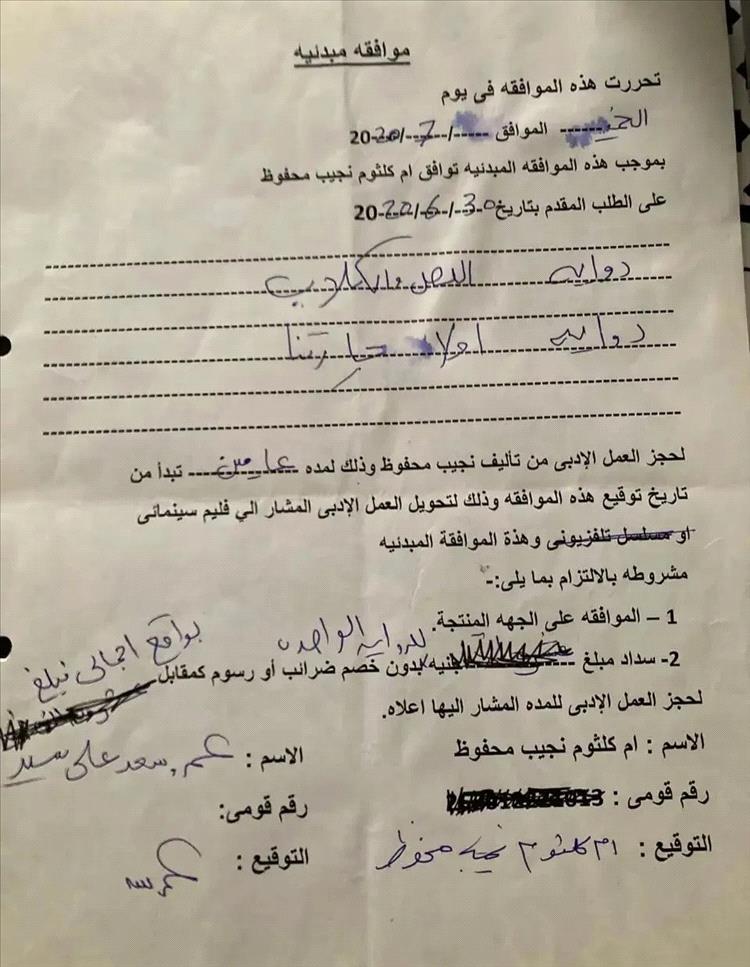 موافقه مبدئيه
تحررت هذه الموافقه فى يوم
------ الموافق -----/--7--/--2020
بموجب هذه الموافقه المبدئيه توافق ام كلثوم نجيب محفوظ
على الطلب المقدم بتاريخ 30/-6-/2020
روايه اللص والكلاب
روايه اولاد حارتنا
لحجز العمل الإدبى من تأليف نجيب محفوظ وذلك لمده عامين تبدأ من
تاريخ توقيع هذه الموافقه وذلك لتحويل العمل الإدبى المشار الي فليم سينمائى
او مسلسل تلفزيونى وهذة الموافقة المبدئيه
مشروطه بالالتزام بما يلى:-
1 – الموافقه على الجهه المنتجة.
للروايه الواحده بواقع اجمالى مبلغ
2- سداد مبلغ جنيه بدون خصم ضرائب أو رسوم كمقابل
لحجز العمل الإدبى للمده المشار اليها اعلاه.
الاسم : ام كلثوم نجيب محفوظ الاسم : عمرو سعد على سيد
رقم قومى : رقم قومى:
التوقيع : ام كلثوم نجيب محفوظ التوقيع :